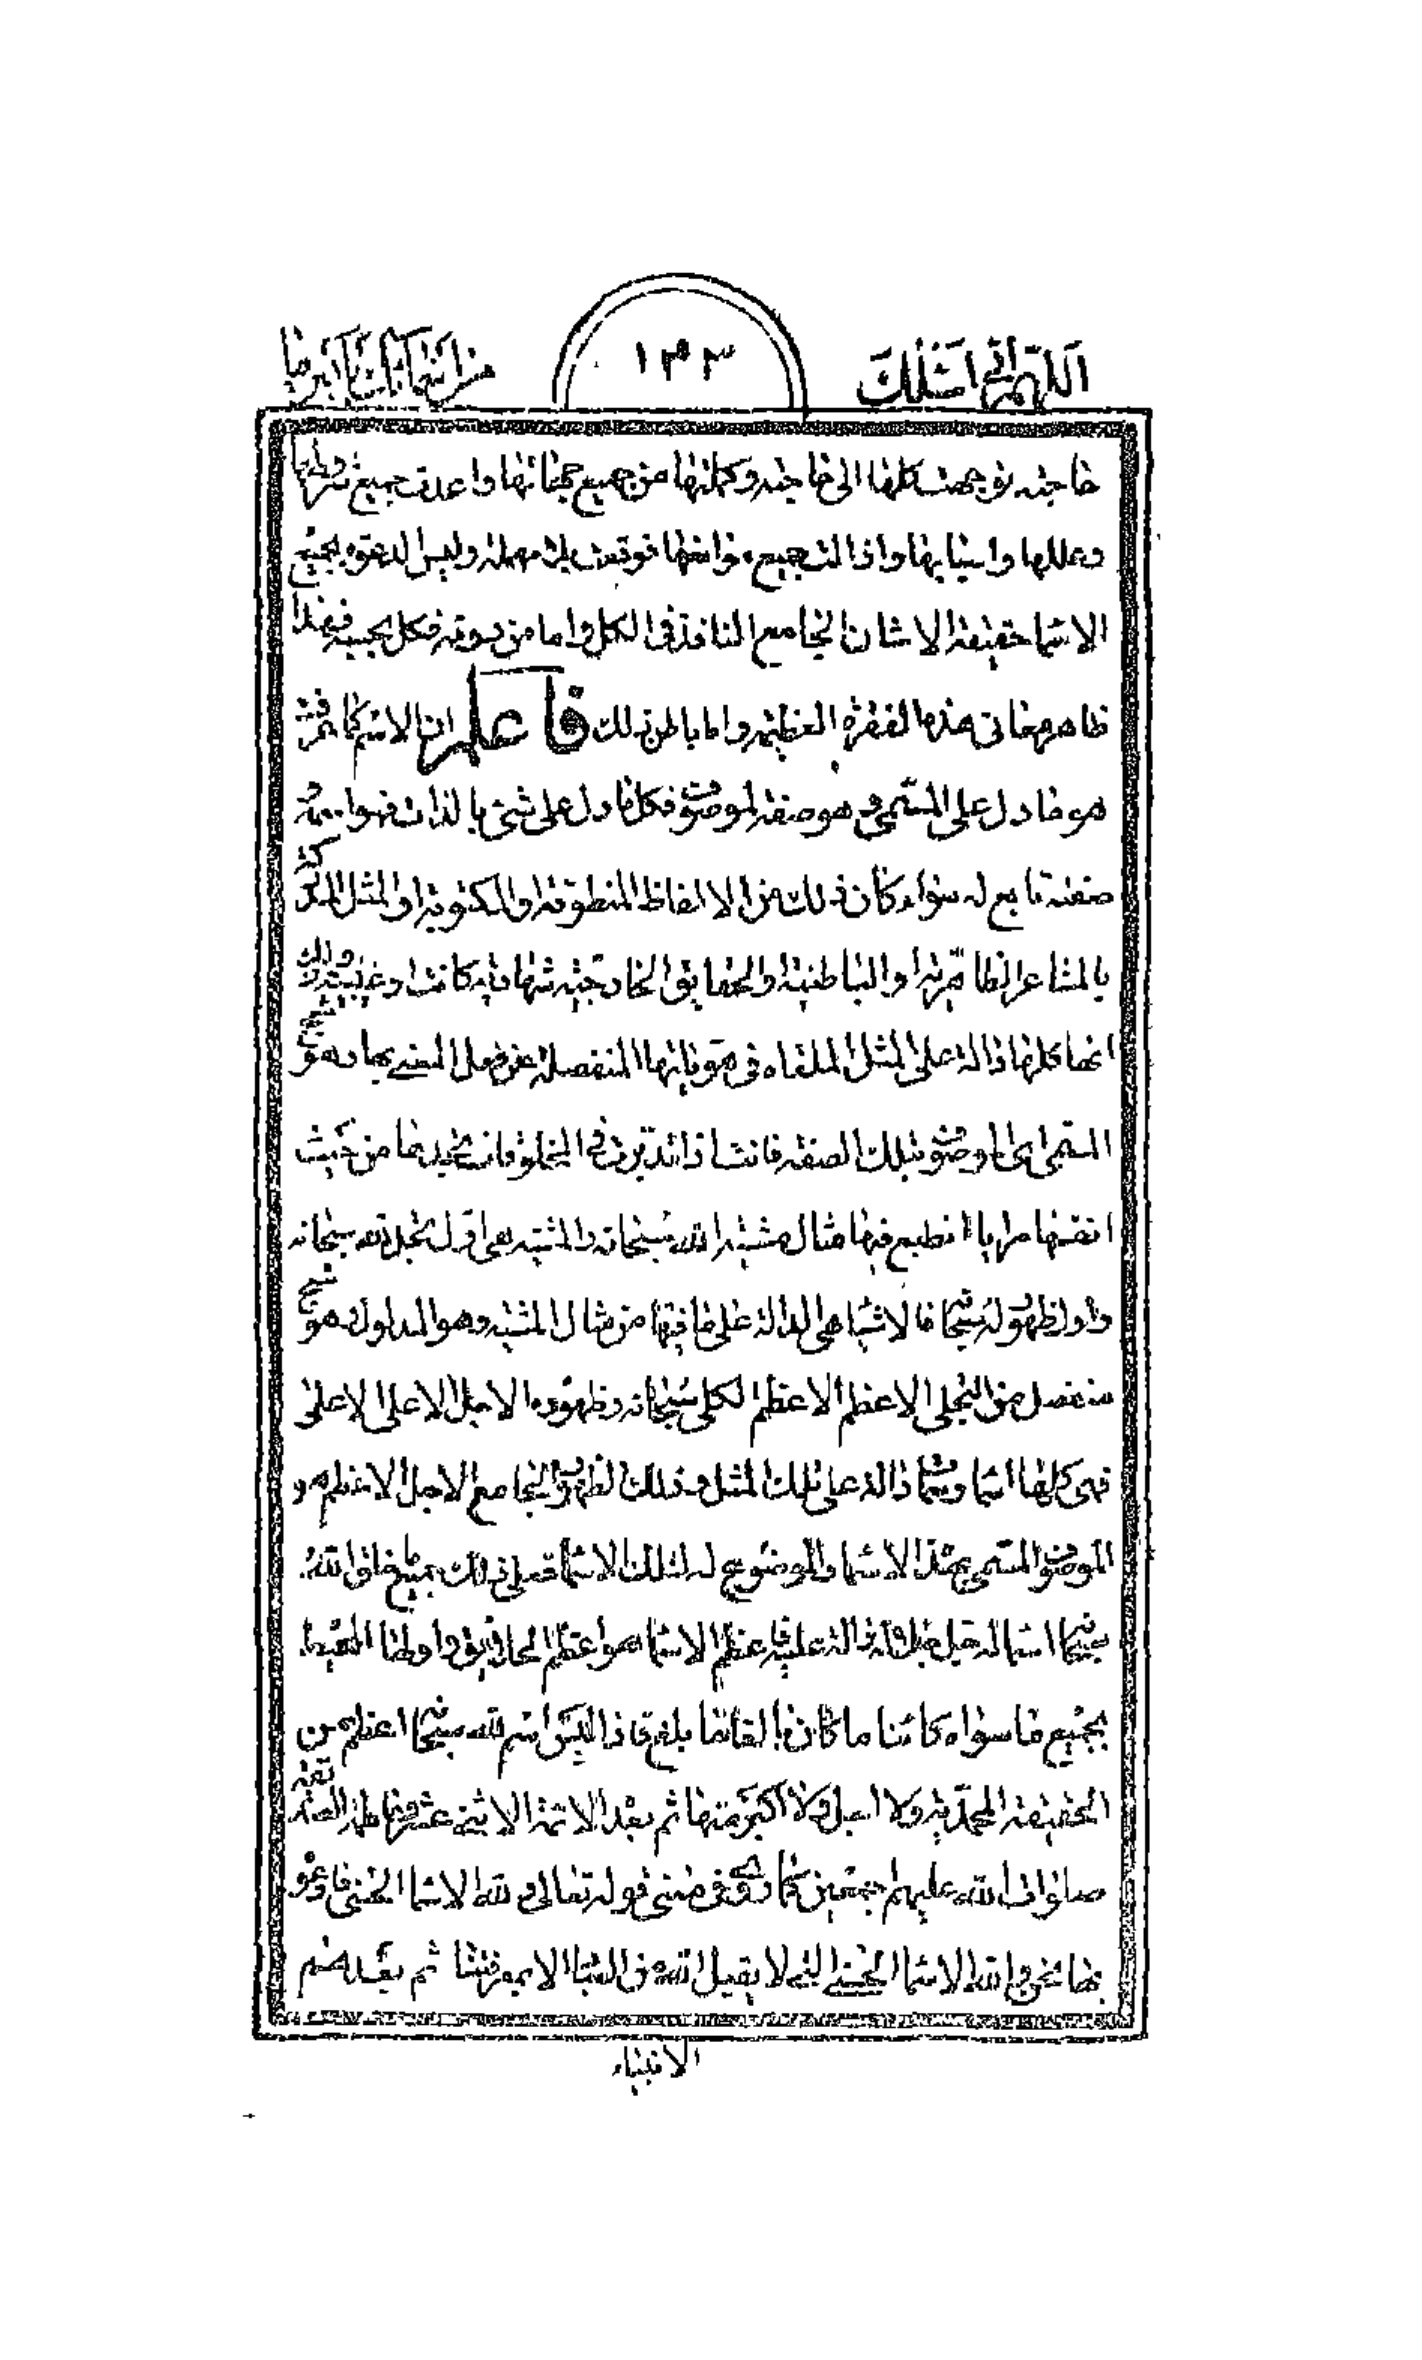 اللهم انى اسئلك
١٣٣
من اسمائك باكبرها
حاجته توجهت كلها الى حاجته وكملتها من جميع جهاتها واعدت جميع شرايطها
وعللها واسبابها وازالت جميع موانعها فوقعت بلا مهملة وليس لدعوه بجميع
الاسماء حقيقة الا الانسان الجامع النافذ فى الكل واما من دونه فكل بحسبه فهذا
ظاهر معانى هذه الفقرة العظيمة واما باطن ذلك فاعلم ان الاسم كما عرفت
هو ما دل على المسمى وهو صفة لموصوف فكل ما دل على شئ بالذات فهو اسمه
صفته تابع له سواء كان ذلك من الالفاظ المنطوقة او المكتوبة او المثل المدركة
بالمشاعر الظاهرية او الباطنية او الحقايق الخارجية شهادية كانت او غيبية وذلك
انها كلها دالة على المثل الملقاة فى هوياتها المنفصلة عن فعل المعنى بها وهو
المسمى اى الموصوف بتلك الصفة فانت اذا تدبرت فى المخلوقات تجدها من حيث
انفسها مرايا انطبع فيها مثال مشية الله سبحانه والمشية هى اول تجلى الله سبحانه
واول ظهوره سبحانه فالاشياء هى الدالة على ما فيها من مثال المشية وهو المدلول وهو شبح
منفصل من التجلى الاعظم الاعظم الكلى سبحانه وظهوره الاجل الاعلى الاعلى
فهى كلها اسماء وسماء دالة على تلك المثل وذلك الظهور الجامع الاجل الاعظم هو
الموصوف المسمى بهذه الاسماء والموضوع له لتلك الاسماء فعلى ذلك جميع ما خلق الله
سبحانه اسماء له جل جلاله دالة عليه فاعظم الاسماء هو اعظم الحقايق واولها المحيط
بجميع ما سواه كائنا ما كان بالغا ما بلغ فاذا ليس اسم لله سبحانه اعظم من
الحقيقة المحمدية ولا اجل ولا اكبر منها ثم بعد الائمة الاثنى عشر وفاطمة الصديقة
صلوات الله عليهم اجمعين كما روى فى معنى قوله تعالى ولله الاسماء الحسنى فادعوه
بها نحن والله الاسماء الحسنى التى لا يقبل الله من العباد الا بمعرفتنا ثم بعدهم
الانبياء